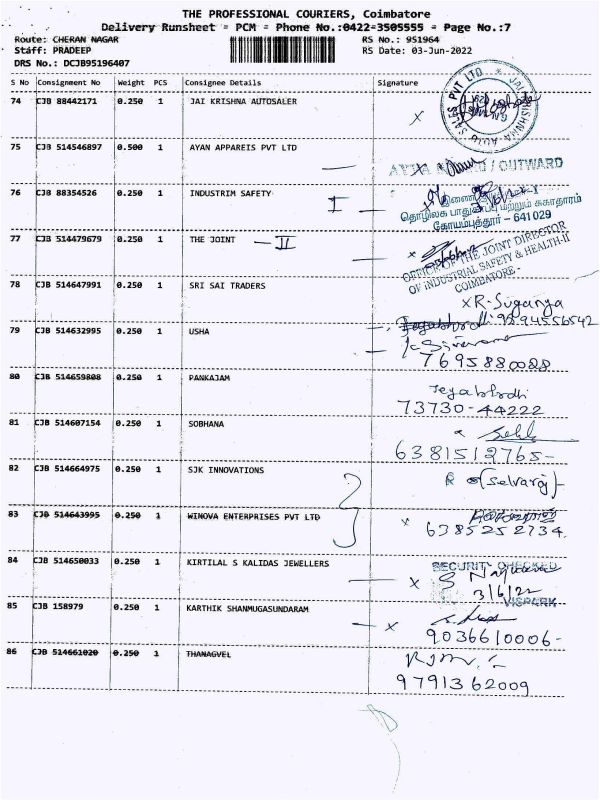 THE PROFESSIONAL COURIERS, Coimbatore
Delivery Runsheet = PCM = Phone No.:0422=3505555 = Page No.:7
Route: CHERAN NAGAR RS No.: 951964
Staff: PRADEEP RS Date: 03-Jun-2022
DRS No.: DCJB95196407
S No Consignment No Weight PCS Consignee Details Signature
74 CJB 88442171 0.250 1 JAI KRISHNA AUTOSALER
75 CJB 514546897 0.500 1 AYAN APPAREIS PVT LTD
/ OUTWARD
76 CJB 88354526 0.250 1 INDUSTRIM SAFETY I
தொழிலக பாதுகாப்பு மற்றும் சுகாதாரம்
கோயம்புத்தூர் - 641 029
77 CJB 514479679 0.250 1 THE JOINT - II
OFFICE OF THE JOINT DIRECTOR
OF INDUSTRIAL SAFETY & HEALTH-II
COIMBATORE -
78 CJB 514647991 0.250 1 SRI SAI TRADERS
x R. Suganya
79 CJB 514632995 0.250 1 USHA
7695880088
80 CJB 514659808 0.250 1 PANKAJAM
73730-44222
81 CJB 514607154 0.250 1 SOBHANA
6381512765-
82 CJB 514664975 0.250 1 SJK INNOVATIONS
83 CJB 514643995 0.250 1 WINOVA ENTERPRISES PVT LTD
6385252734
84 CJB 514650033 0.250 1 KIRTILAL S KALIDAS JEWELLERS
SECURITY CHECKED
3/6/22
85 CJB 158979 0.250 1 KARTHIK SHANMUGASUNDARAM
9036610006-
86 CJB 514661020 0.250 1 THANAGVEL
9791362009